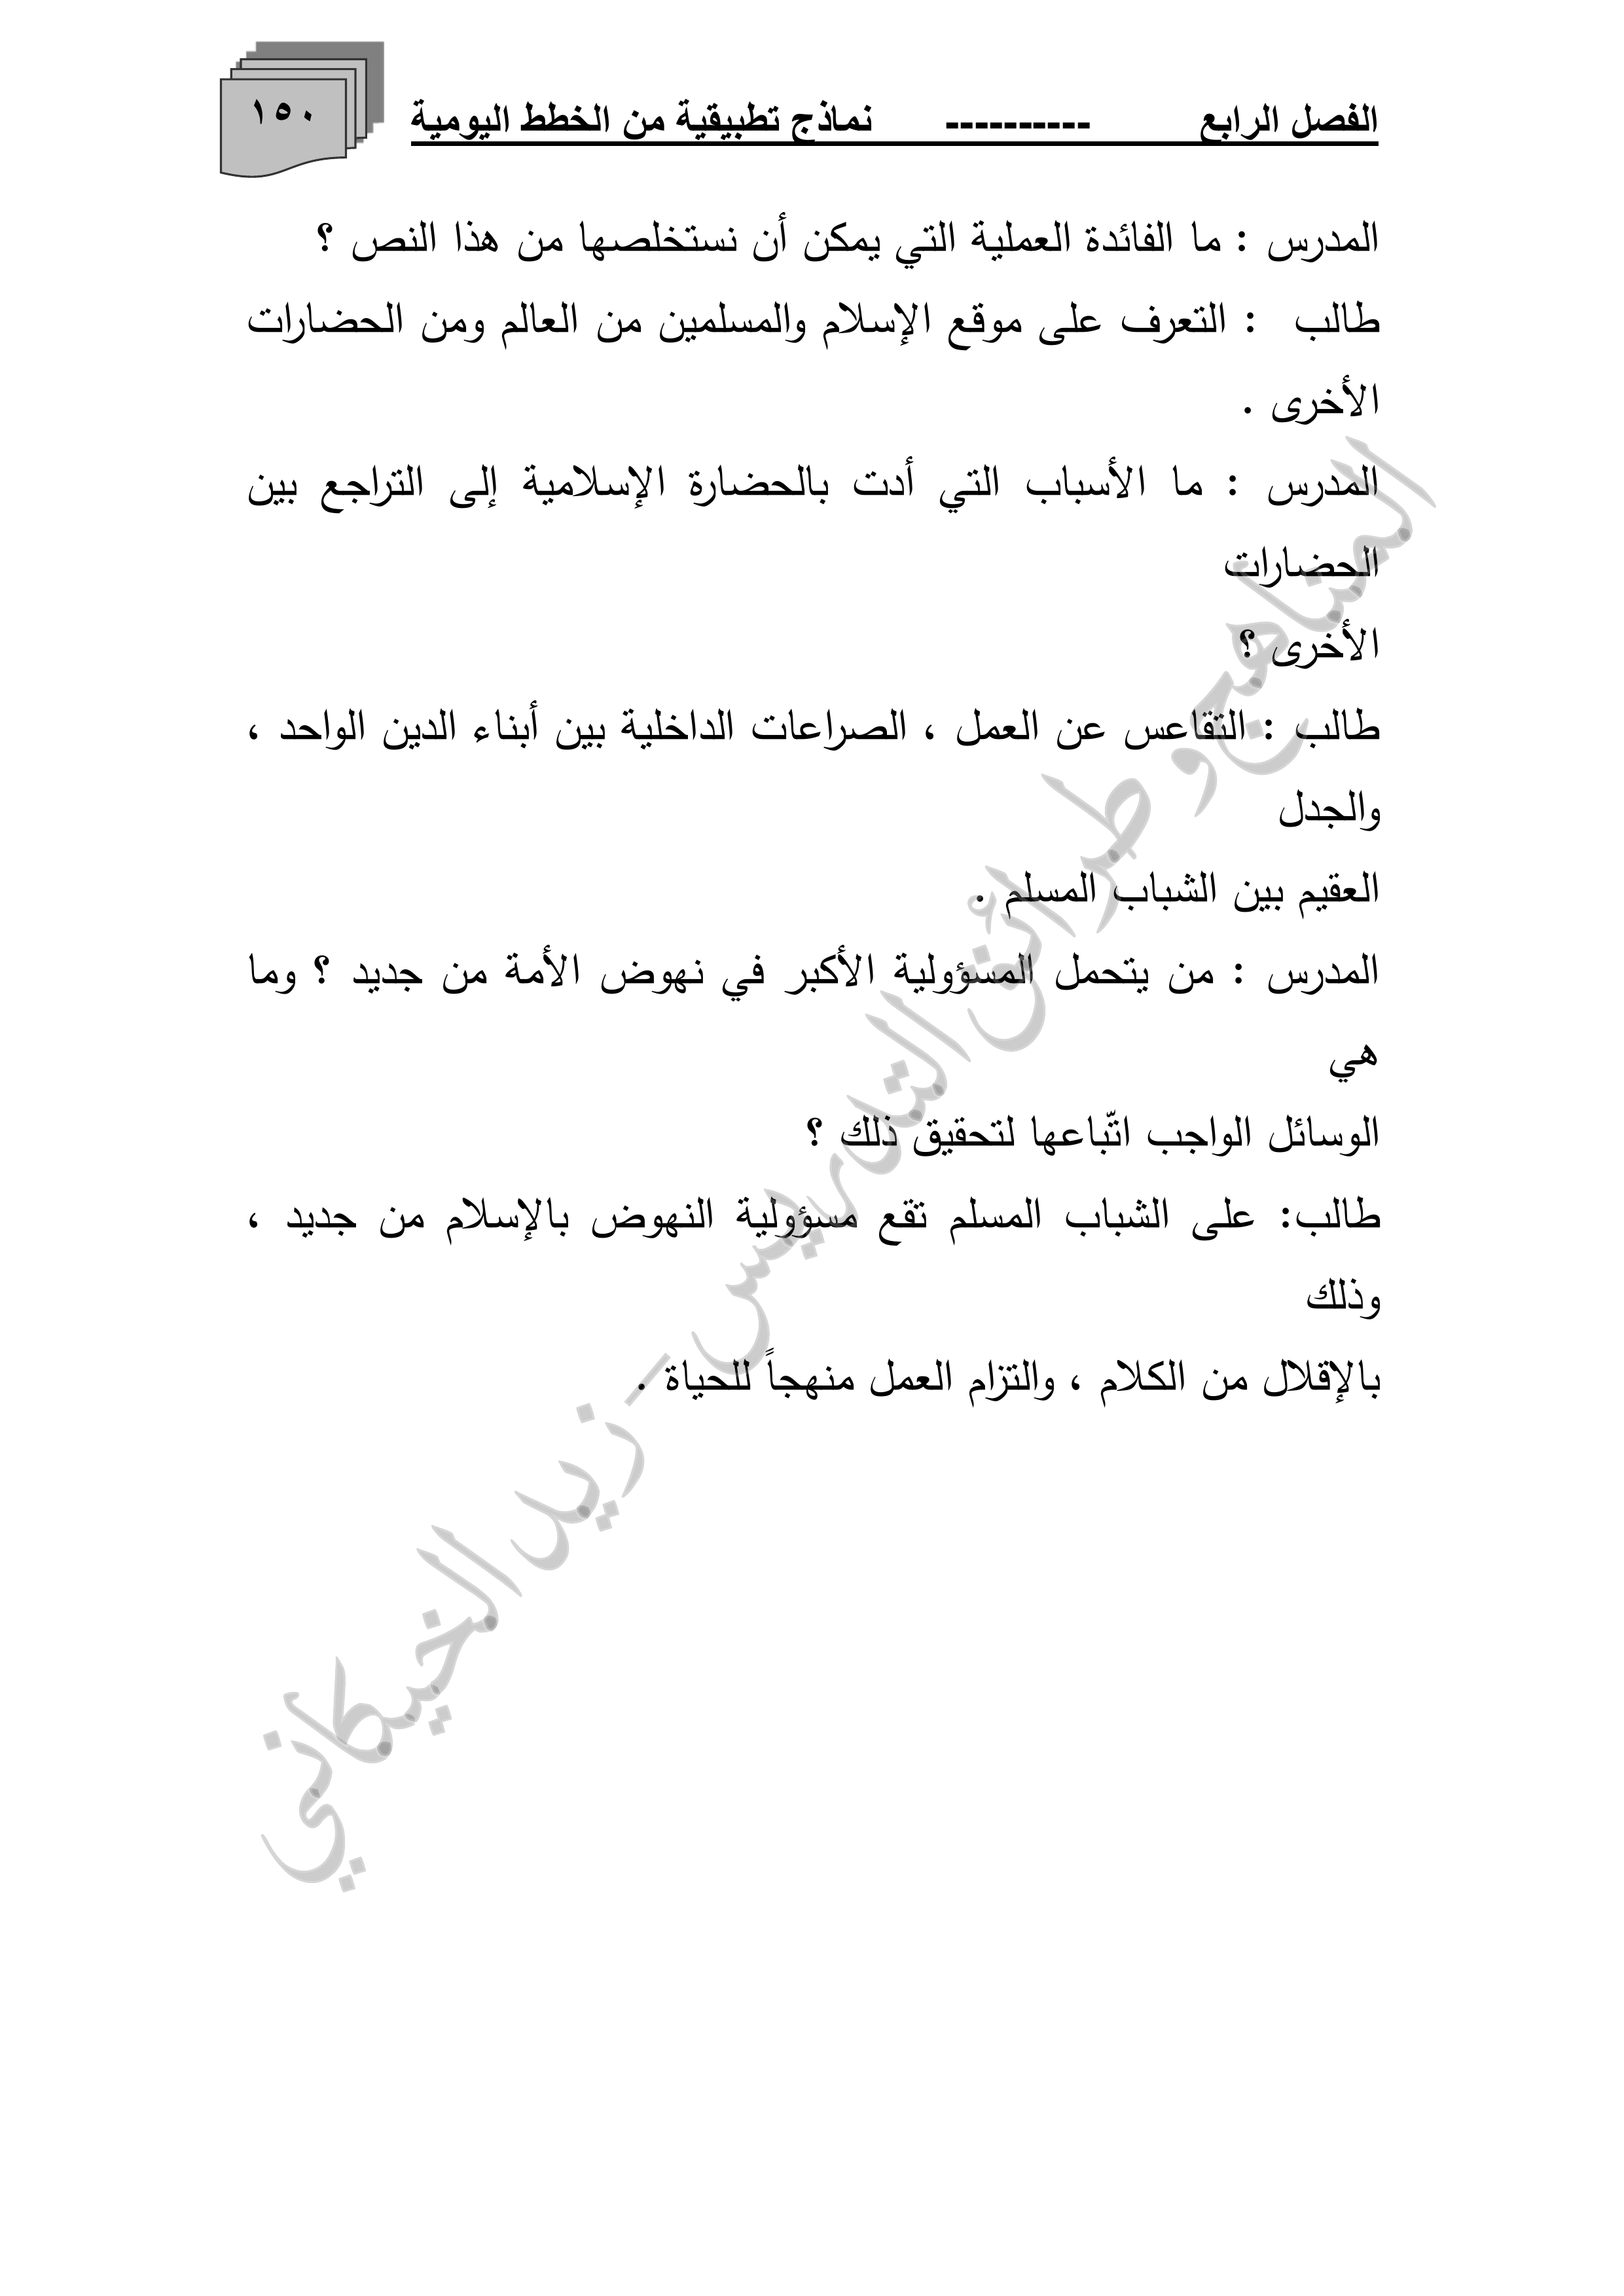 الفصل الرابع ---------- نماذج تطبيقية من الخطط اليومية ١٥٠
المدرس : ما الفائدة العملية التي يمكن أن نستخلصها من هذا النص ؟
طالب : التعرف على موقع الإسلام والمسلمين من العالم ومن الحضارات
الأخرى .
المدرس : ما الأسباب التي أدت بالحضارة الإسلامية إلى التراجع بين
الحضارات
الأخرى ؟
طالب : التقاعس عن العمل ، الصراعات الداخلية بين أبناء الدين الواحد ،
والجدل
العقيم بين الشباب المسلم .
المدرس : من يتحمل المسؤولية الأكبر في نهوض الأمة من جديد ؟ وما
هي
الوسائل الواجب اتّباعها لتحقيق ذلك ؟
طالب: على الشباب المسلم تقع مسؤولية النهوض بالإسلام من جديد ،
وذلك
بالإقلال من الكلام ، والتزام العمل منهجاً للحياة .
المناهج وطرائق التدريس - زيد الخيكاني